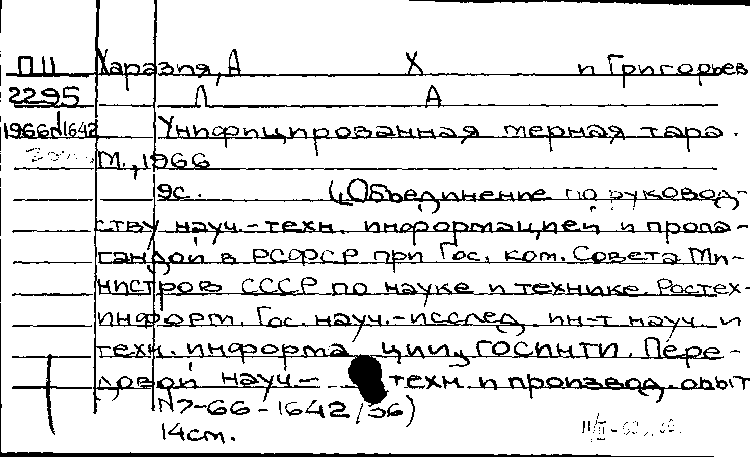 ПII Харазпя, А Х п Григорьев
2295 Л А
1966 1642 Унифицированная мерная тара.
М., 1966
9с. (Объединение по руковод-
ству науч.-техн. информацией и пропа-
гандой в РСФСР при Гос. ком. Совета Ми-
нистров СССР по науке и технике. Ростех-
информ. Гос. науч.-исслед. ин-т науч. и
техн. информа ции, ГОСИНТИ. Пере-
довой науч.- техн. и производ. опыт
N7-66-1642/36)
14см.